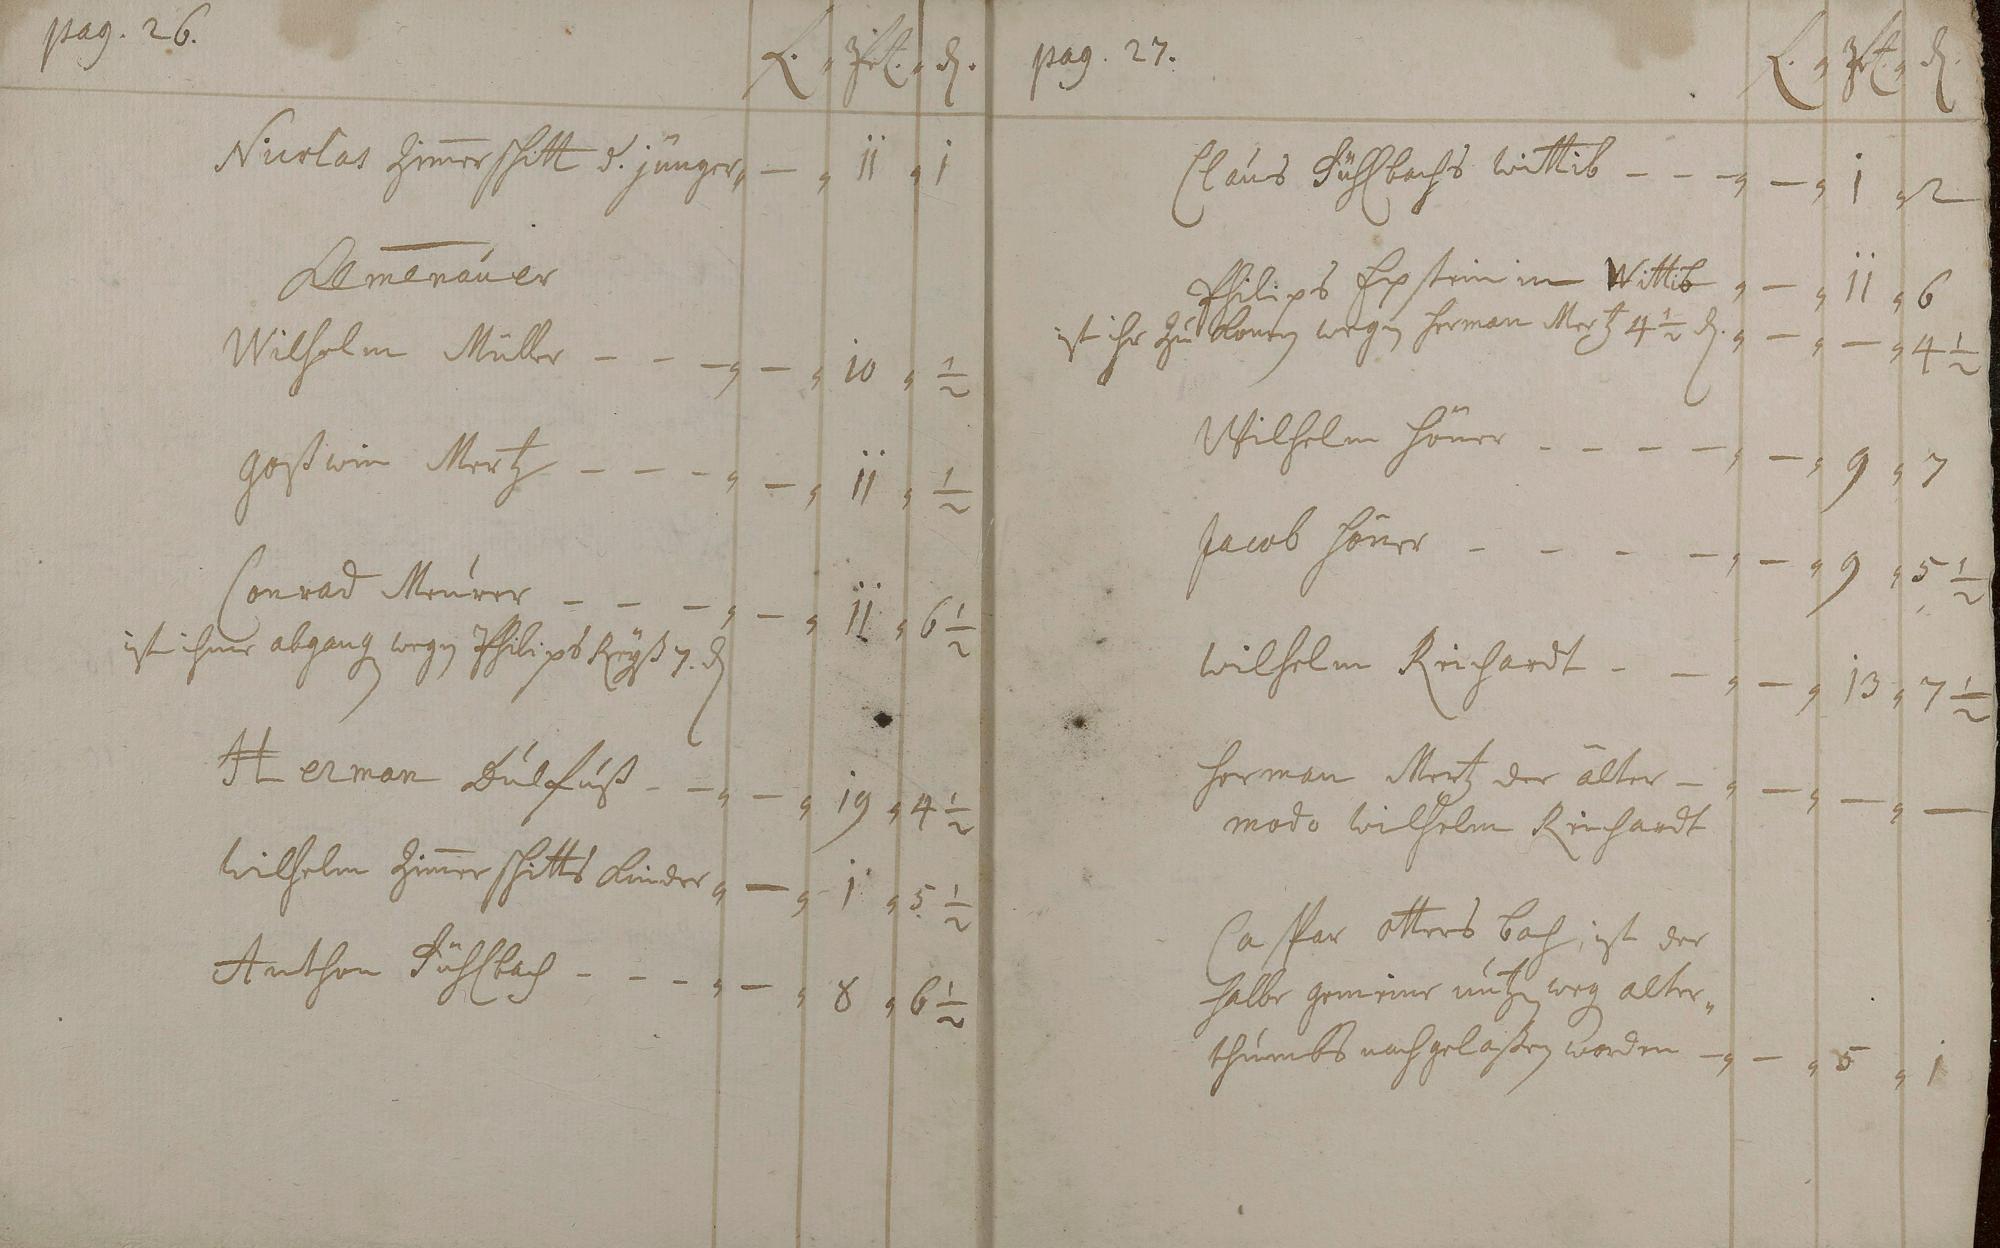 pag. 26.
Nicolas Zim̅erschitt d. jünger „ — „ 11 „ 1
Wilhelm Müller — — — „ — „ 10 „ ½
Goßwin Mertz — — — „ — „ 11 „ ½
Conrad Meúrer — — — „ — „ 11 „ 6 ½
ist ihme abgang wegen Philips Reyß 7. d
Herman Dúlfúß — — „ — „ 19 „ 4 ½
Wilhelm Zim̅erschitts Kinder „ — „ 1 „ 5 ½
Anthon Sühlbach — — — „ — „ 8 „ 6 ½
pag. 27.
Claús Sühlbachs Wittib — — — „ — „ 1 „ 2
Philips Epsteinin Wittib „ — „ 11 „ 6
ist ihr zú komen wegen Herman Mertz 4 ½ d. „ — „ — „ 4 ½
Wilhelm Höner — — — — „ — „ 9 „ 7
Jacob Höner — — — — „ — „ 9 „ 5 ½
Wilhelm Reichardt — — „ — „ 13 „ 7 ½
Herman Mertz der älter — „ — „ — „ —
modo Wilhelm Reichardt
Caspar Ottersbach, ist der
halbe gemeine nútzen weg alter„
thúmbs nachgelaßen worden — „ — „ 5 „ 1